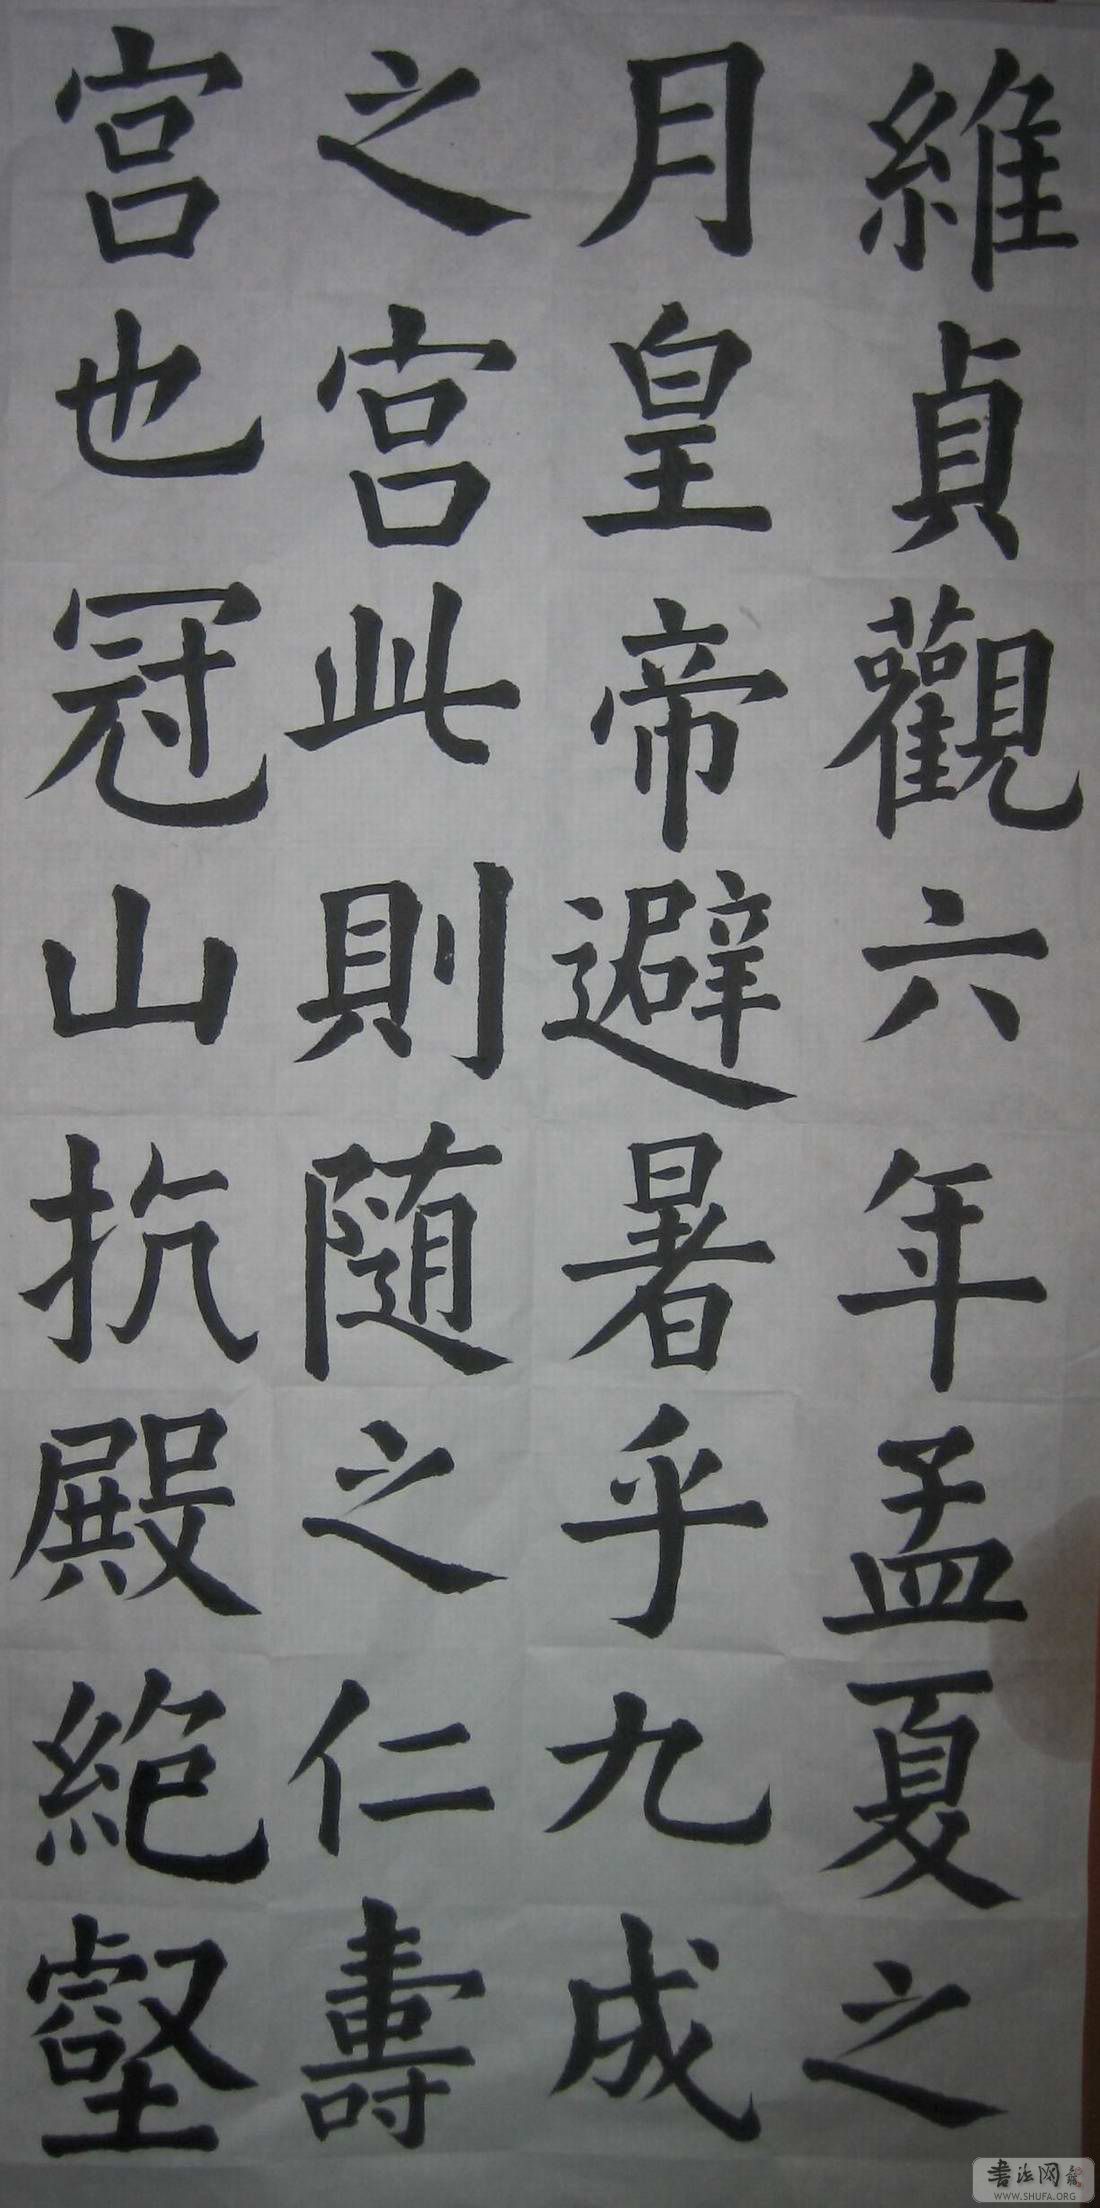 維貞觀六年孟夏之
月皇帝避暑乎九成
之宮此則随之仁壽
宮也冠山抗殿絶壑
書法网
WWW.SHUFA.ORG